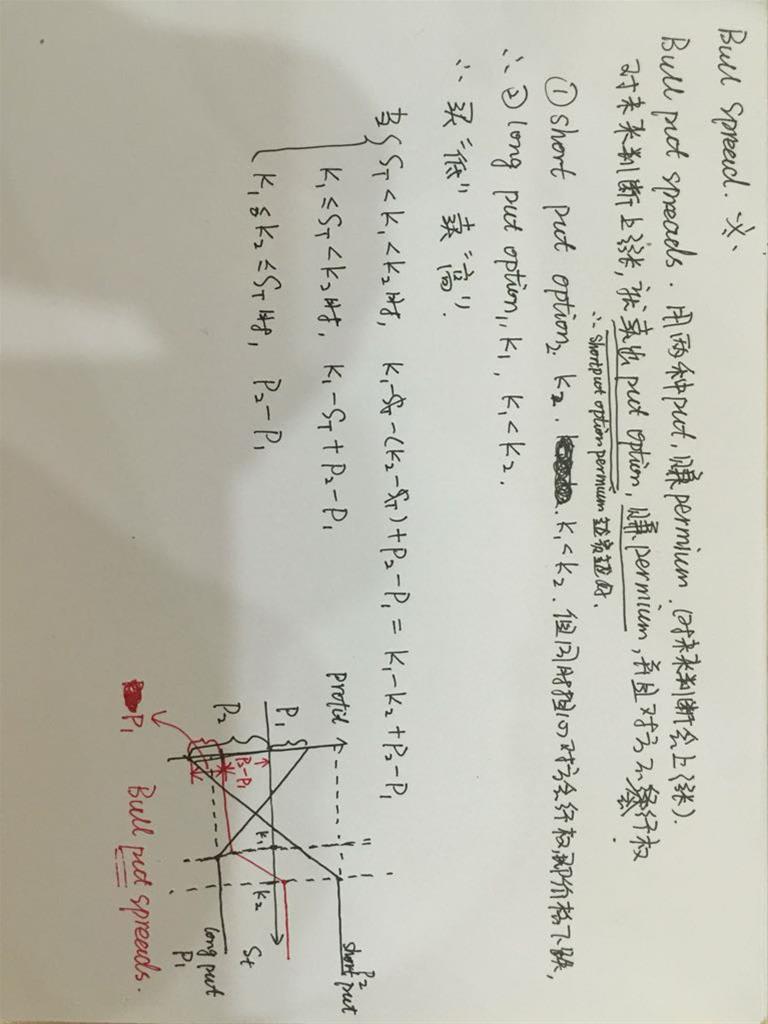 Bull spread.
Bull put spreads. 用两种put,赚permium.(对未来判断会上涨).
对未来判断上涨,就卖出put option,赚permium,并且对方不会行权.
∴ short put option permium
① short put option₂ K₂. K₁<K₂. 但同时担心对方会行权,即价格下跌,
∴ ② long put option₁, K₁, K₁<K₂.
∴ 买“低”卖“高”.
当{ S_T<K₁<K₂时, K₁-S_T-(K₂-S_T)+P₂-P₁=K₁-K₂+P₂-P₁
K₁≤S_T<K₂时, K₁-S_T+P₂-P₁
K₁≤K₂≤S_T时, P₂-P₁
profit
P₁
P₂
P₂-P₁
P₁
K₁
K₂
St
P₂
short put
long put
P₁
Bull put spreads.